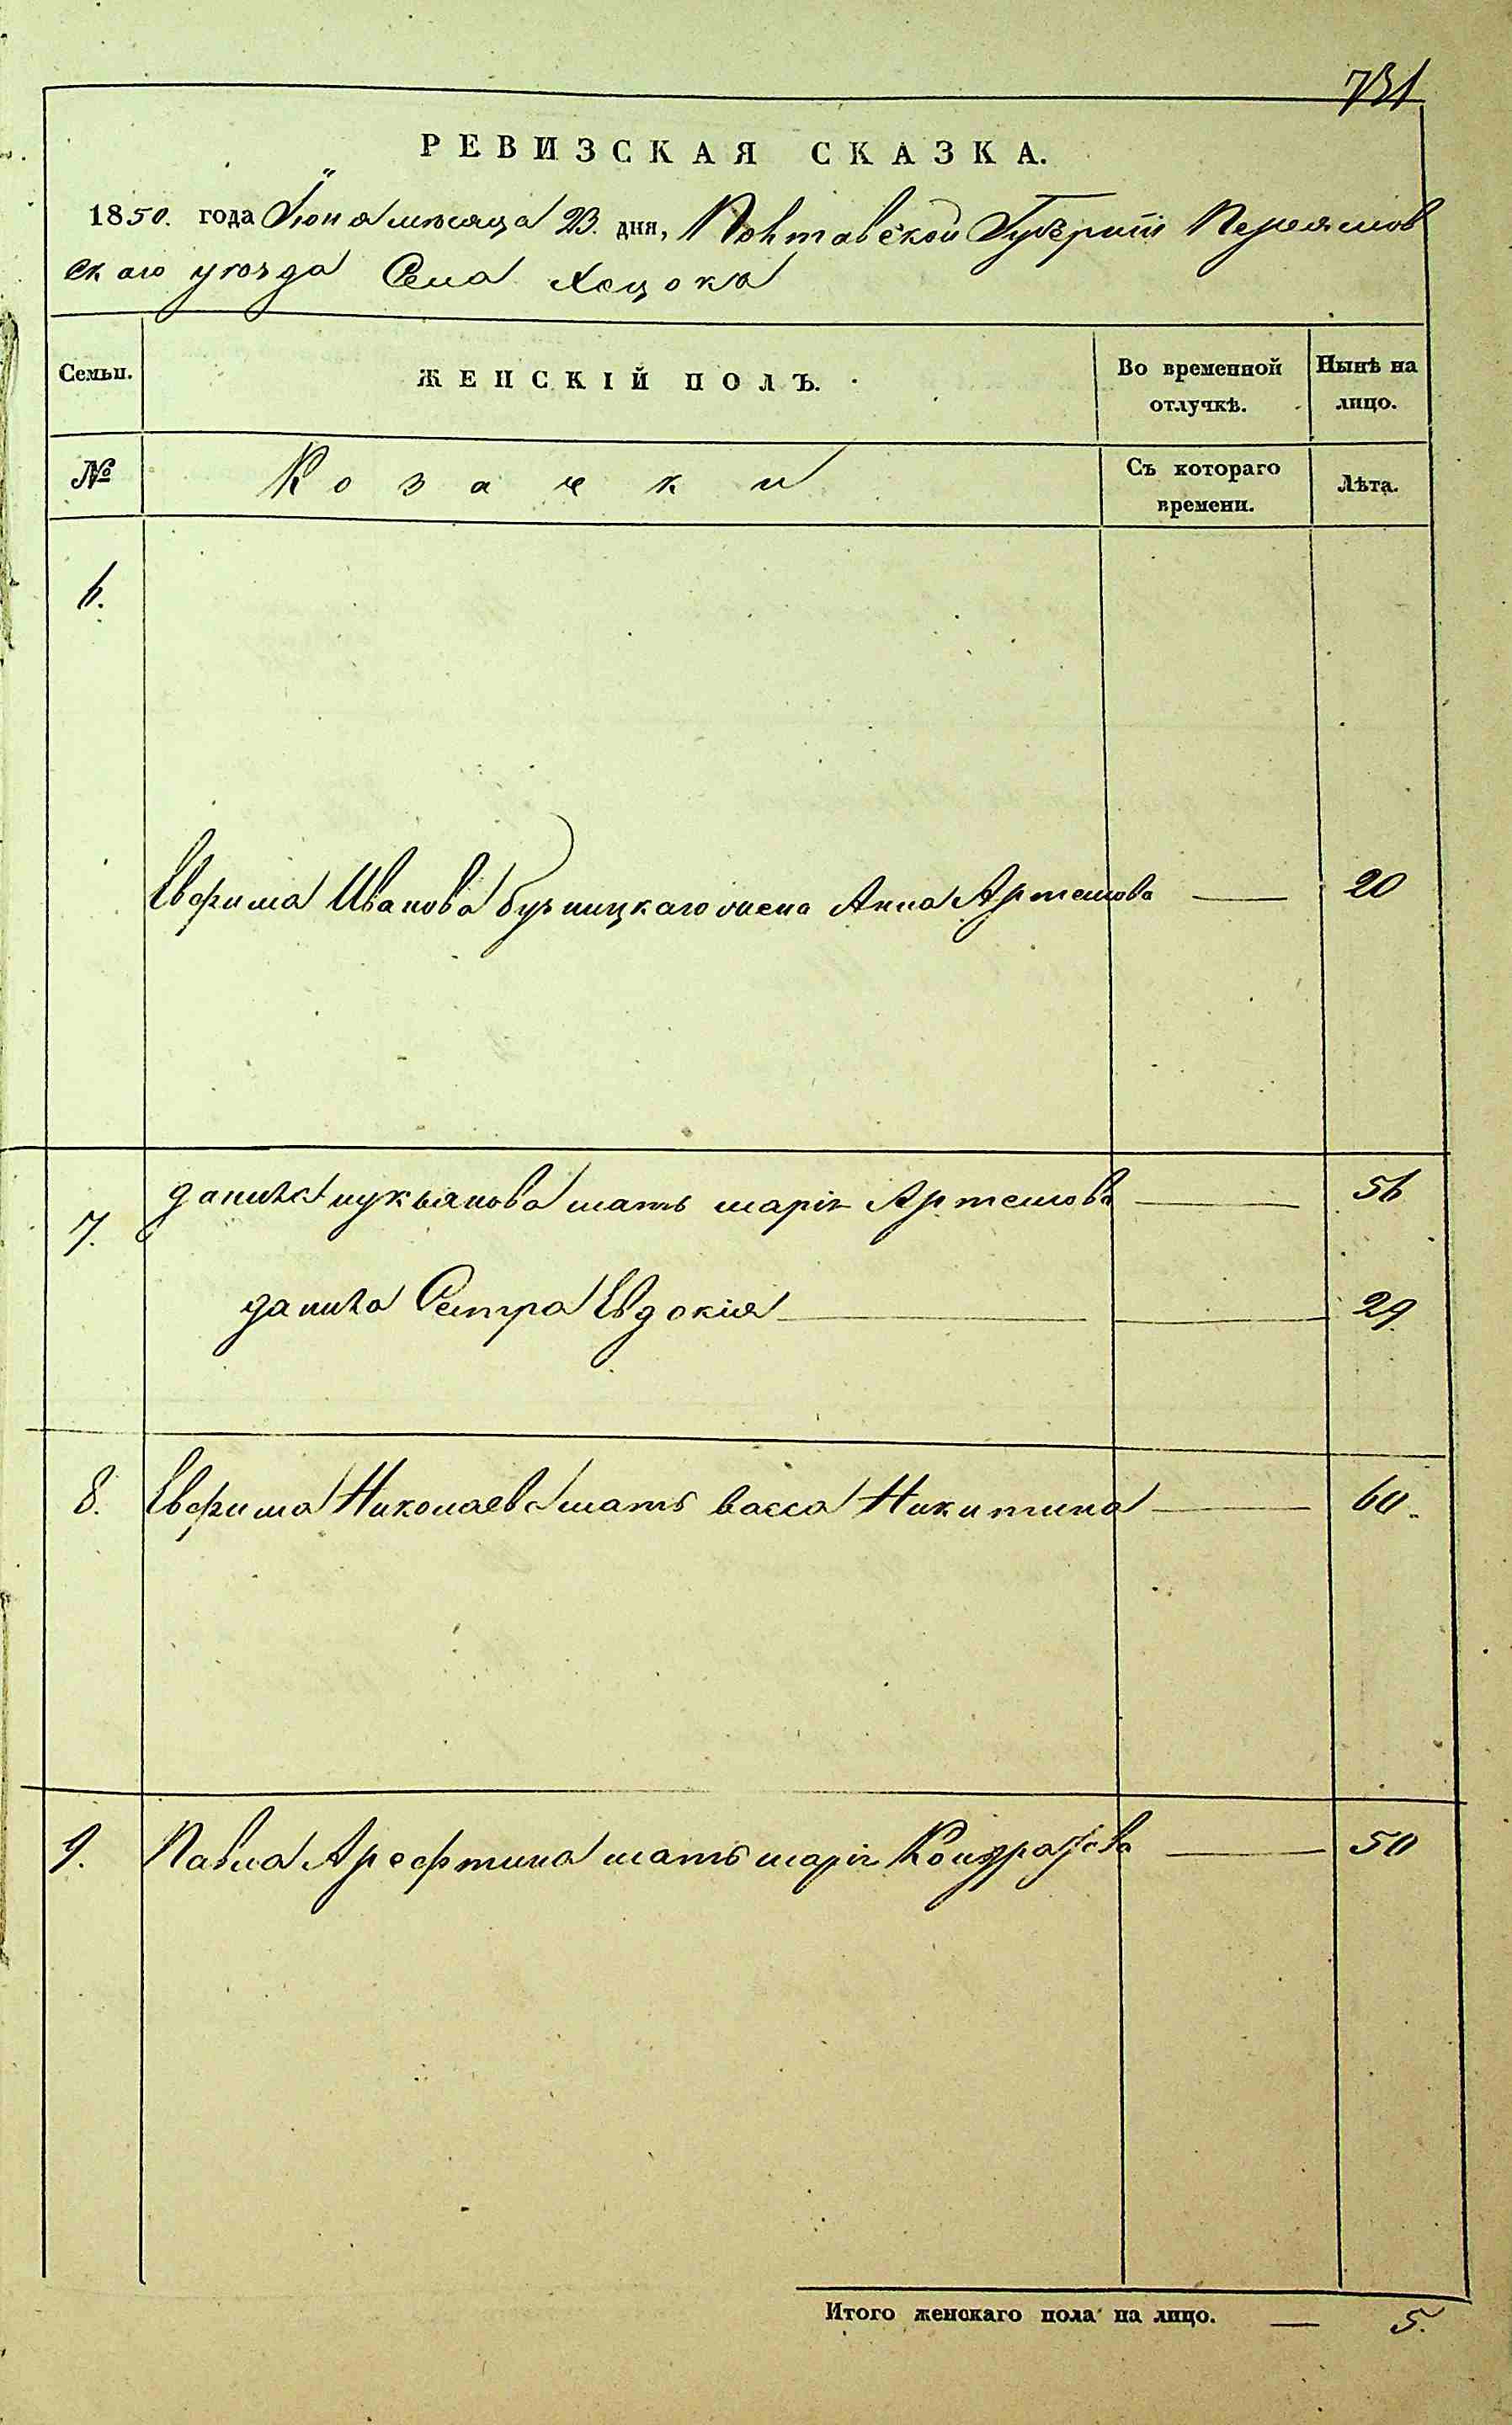 731
РЕВИЗСКАЯ СКАЗКА.
1850. года Іюня мѣсяца 23. дня, Полтавской Губерніи Переяслов
скаго уѣзда Села Хоцокъ
Семьи.
ЖЕНСКІЙ ПОЛЪ.
Во временной отлучкѣ.
Нынѣ на лицо.
№
Козачки
Съ котораго времени.
Лѣта.
6.
Евфима Иванова жена Анна Артемова — 20
7.
Данила Лукьянова мать Марія Артемова — 56
Данила Сестра Евдокія — 29
8. Евфима Николаева мать Васса Никитина — 60.
9. Павла Арефтина мать Марія Кондратова — 50
Итого женскаго пола на лицо. — 5.